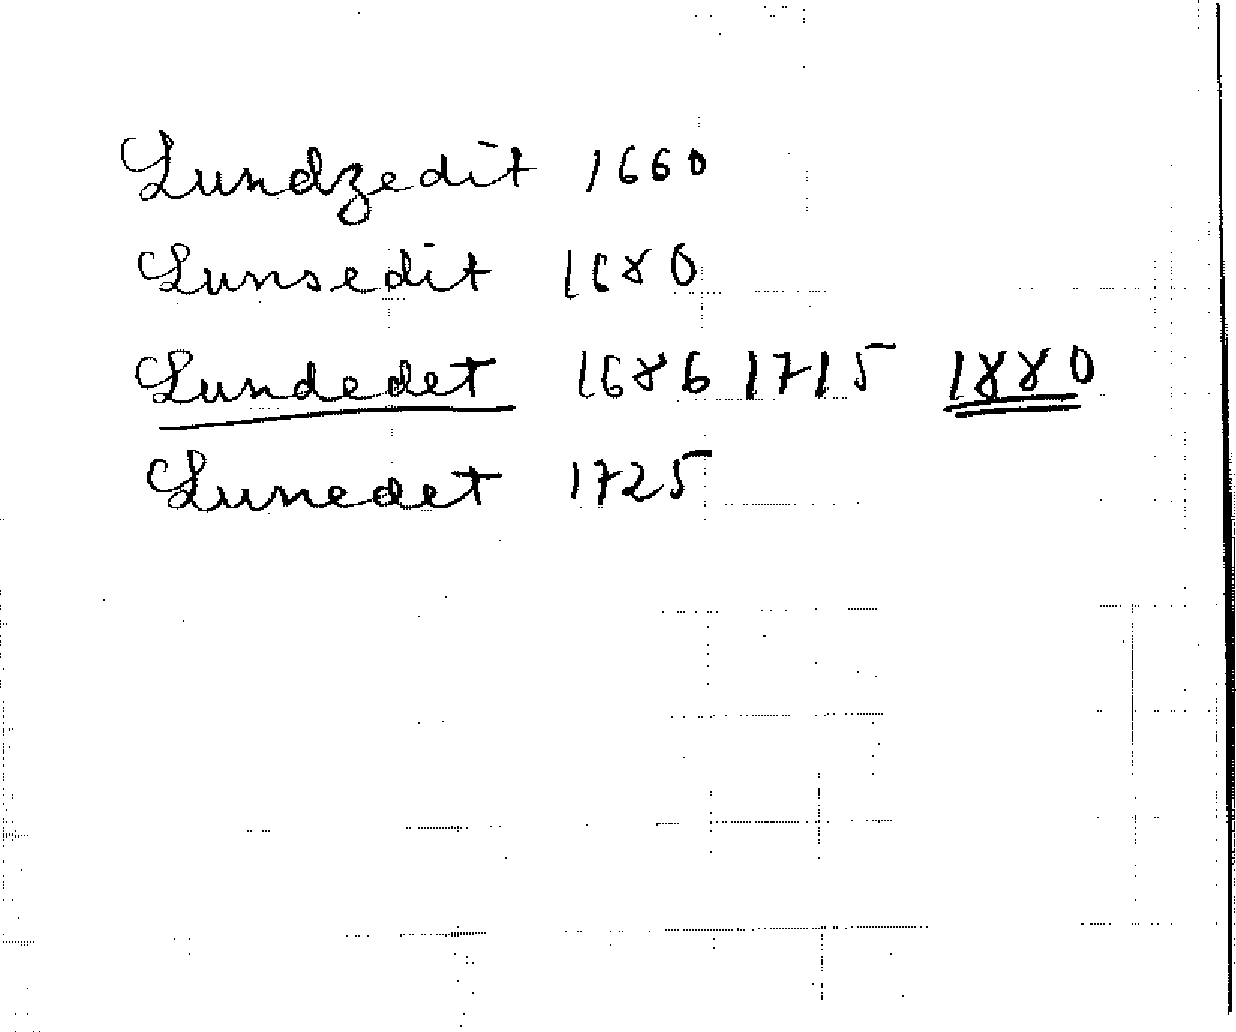 Lundzedit 1660
Lunsedit 1680
Lundedet 1686 1715 1880
Lunedet 1725